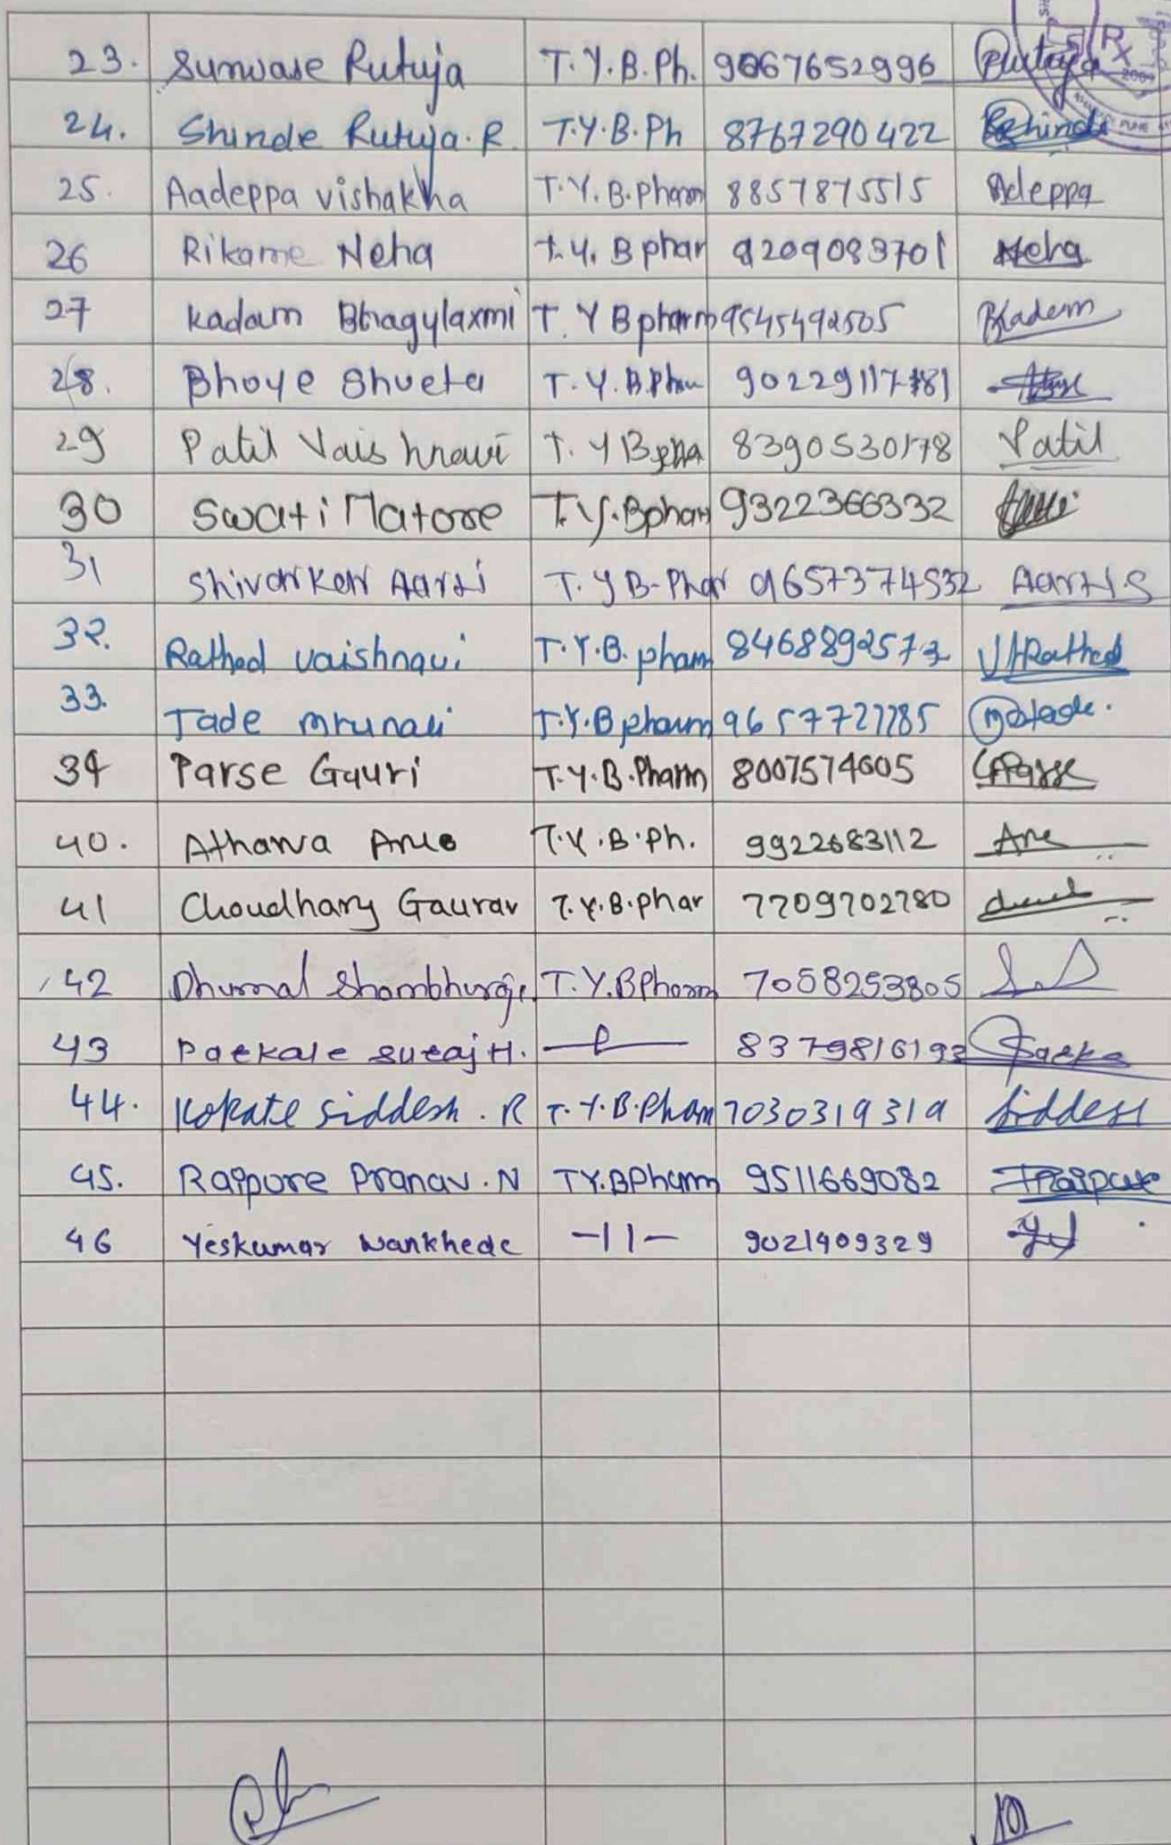 23. Sunwase Rutuja T.Y.B.Ph. 9067652996 Rutuja
24. Shinde Rutuja.R. T.Y.B.Ph 8767290422 Rshinde
25. Aadeppa vishakha T.Y.B.pharm 8857875515 Adeppa
26 Rikame Neha t.y. B phar 9209089701 Neha
27 Kadam Bhagylaxmi T.Y B pharm 9545492505 Bkadam
28. Bhoye Shweta T.Y.B.Phar
29 Patil Vaishnavi T.Y Bpha 8390530178 Patil
30 Swati Matore T.Y.Bpharm 9322366332
31 Shivankar Aarti T.Y B-Phar 9657374532 Aarti S
32. Rathod vaishnavi T.Y.B. pham 8468892573 VHRathod
33. Tade mrunali T.Y.B pharm 9657727785
34 Parse Gauri T.Y.B.Pharm 8007574605 GParse
40. Atharva Are T.Y.B.Ph. 9922683112 Are
41 Choudhary Gaurav T.Y.B.phar 7709702780
42 Dhumal Shambhuraje T.Y.BPharm 7058253805
43 Patkale suraj H. 8379816193
44. Kokate siddesh.R T.Y.B.Pham 7030319319 Siddesh
45. Rajpure Pranav.N TY.BPharm 9511669082
46 Yeskumar Wankhede -11- 9021909329